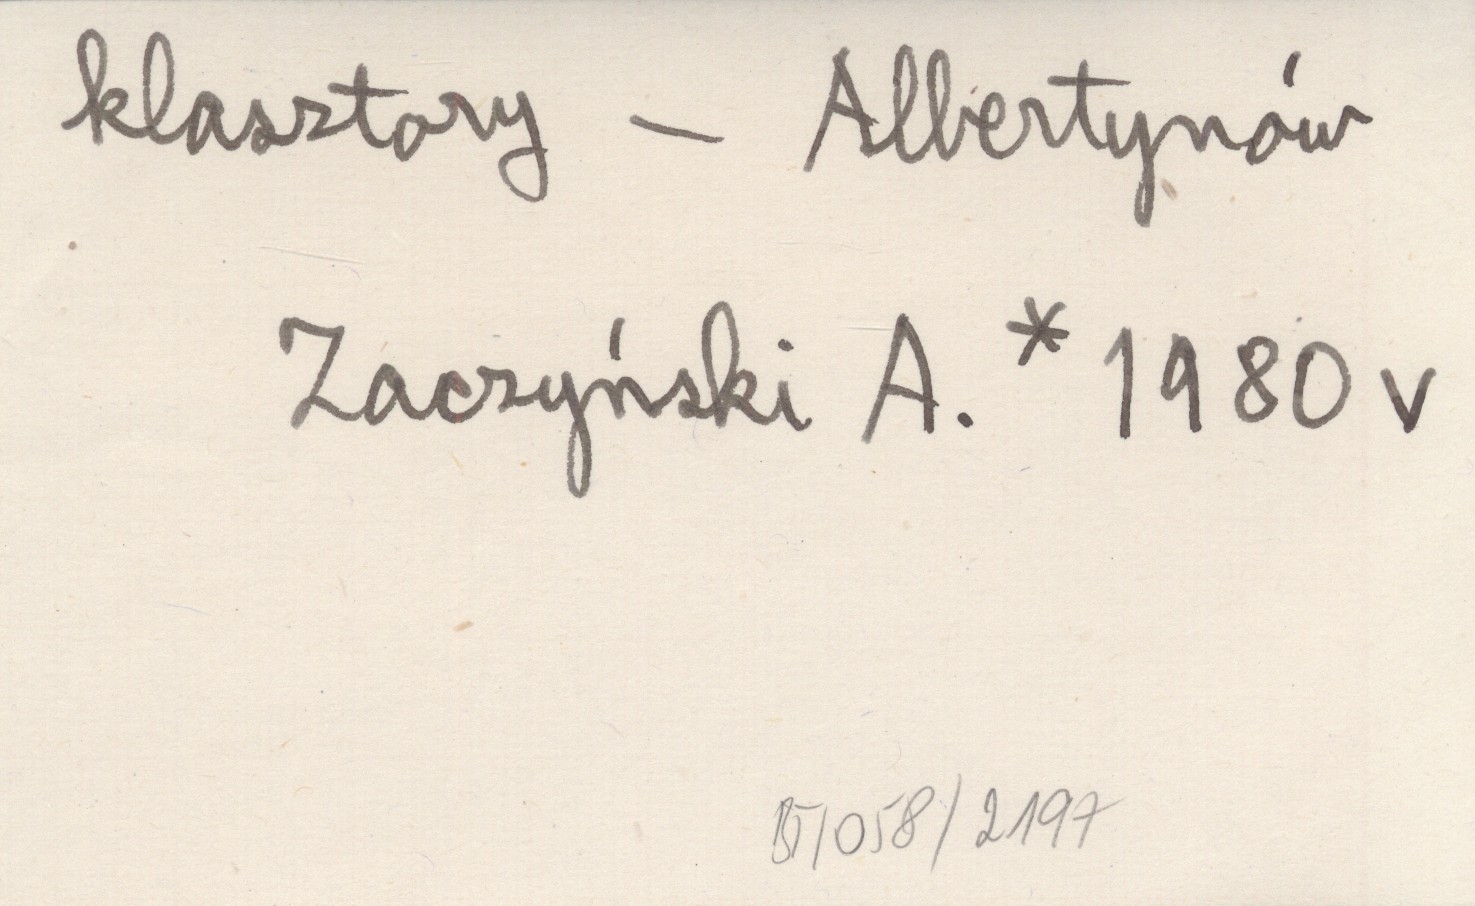 klasztory – Albertynów
Zaczyński A. * 1980 v
BT/058/2197